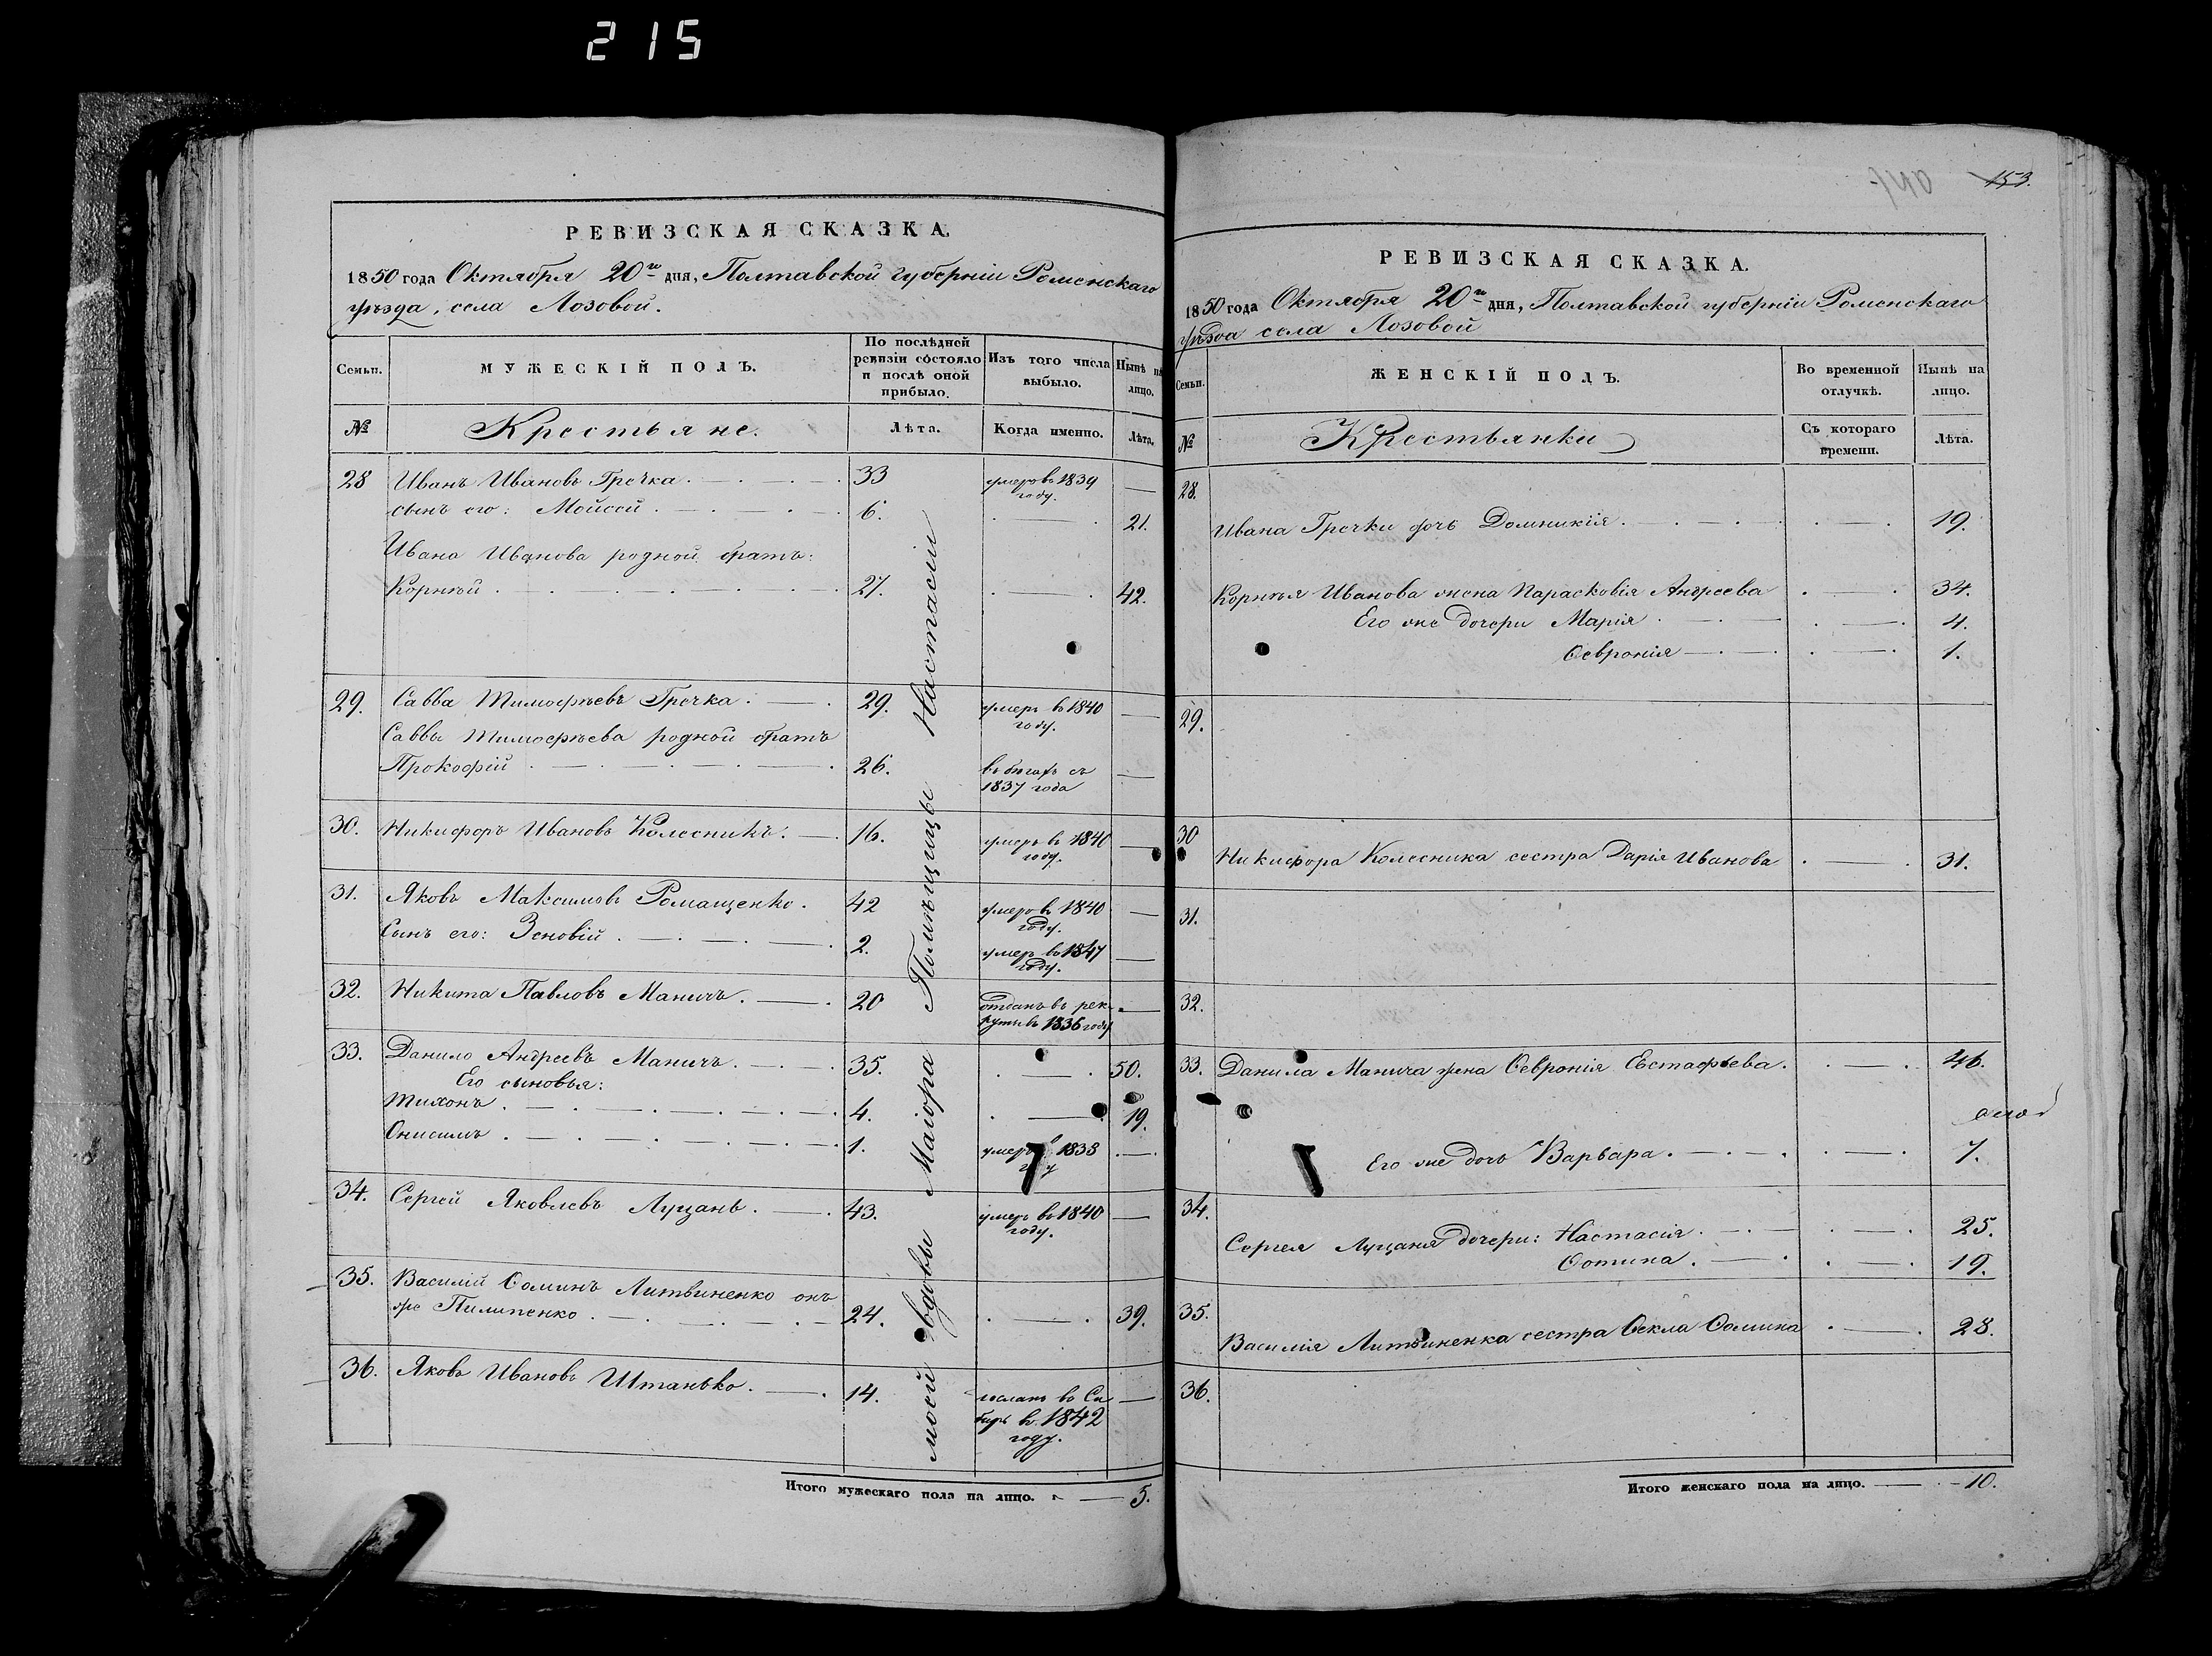 215
РЕВИЗСКАЯ СКАЗКА.
1850 года Октября 20го дня, Полтавской губерніи Роменскаго
уѣзда, села Лозовой.
Семьи. МУЖЕСКІЙ ПОЛЪ. По послѣдней ревизіи состояло и послѣ оной прибыло. Изъ того числа выбыло. Нынѣ на лицо.
№ Крестьяне. Лѣта. Когда именно. Лѣта.
28 Иванъ Ивановъ Гречка 33 умеръ въ 1839 году. —
сынъ его: Мойсей 6. — 21.
Ивана Иванова родной братъ:
Корнѣй 27. — 42.
29. Савва Тимофѣевъ Гречка 29. умеръ въ 1840 году. —
Саввы Тимофѣева родной братъ
Прокофій 26. въ бѣгахъ съ 1837 года —
30. Никифоръ Ивановъ Колесникъ 16. умеръ въ 1840 году. —
31. Яковъ Максимовъ Ромащенко 42 умеръ въ 1840 году. —
Сынъ его: Зеновій 2. умеръ въ 1847 году. —
32. Никита Павловъ Маничъ 20 отданъ въ рекруты въ 1836 году —
33. Данило Андреевъ Маничъ 35. — 50.
Его сыновья:
Тихонъ 4. — 19.
Онисимъ 1. умеръ в 1838 —
34. Сергей Яковлевъ Луцань 43. умеръ въ 1840 году. —
35. Василій Ѳоминъ Литвиненко онъ
же Пилипенко 24. — 39.
36. Яковъ Ивановъ Штанько 14. сосланъ въ Сибирь въ 1842 году. —
моей вдовы Маіора Помѣщицы Настасіи
Итого мужескаго пола на лицо. — 5.
153.
РЕВИЗСКАЯ СКАЗКА.
1850 года Октября 20го дня, Полтавской губерніи Роменскаго
уѣзда села Лозовой
Семьи. ЖЕНСКІЙ ПОЛЪ. Во временной отлучкѣ. Нынѣ на лицо.
№ Крестьянки Съ котораго времени. Лѣта.
28.
Ивана Гречки дочь Домникія — 19.
Корнѣя Иванова жена Парасковія Андреева — 34.
Его же дочери Марія — 4.
Ѳевронія — 1.
29.
30
Никифора Колесника сестра Дарія Иванова — 31.
31.
32.
33. Данила Манича жена Ѳевронія Евстафьева. — 46.
Его же дочь Варвара. — 7.
34.
Сергея Луцаня дочери: Настасія — 25.
Ѳотина. — 19.
35.
Василія Литвиненка сестра Ѳекла Ѳомина — 28.
36.
Итого женскаго пола на лицо. — 10.